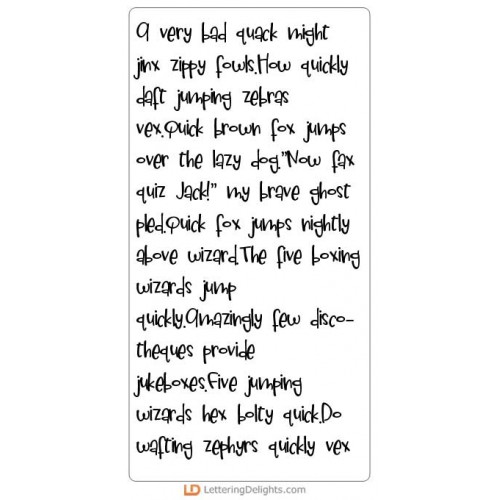 A very bad quack might
jinx zippy fowls.How quickly
daft jumping zebras
vex.Quick brown fox jumps
over the lazy dog."Now fax
quiz Jack!" my brave ghost
pled.Quick fox jumps nightly
above wizard.The five boxing
wizards jump
quickly.Amazingly few disco-
theques provide
jukeboxes.Five jumping
wizards hex bolty quick.Do
wafting zephyrs quickly vex
LD LetteringDelights.com